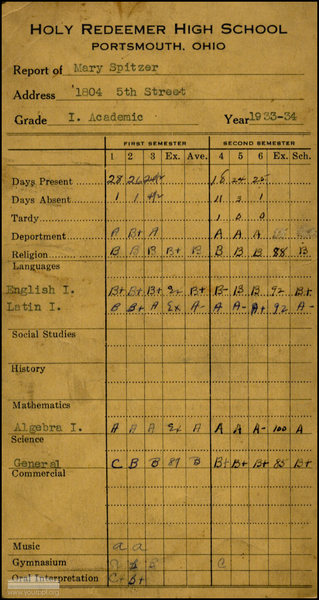 HOLY REDEEMER HIGH SCHOOL
PORTSMOUTH, OHIO
Report of Mary Spitzer
Address '1804 5th Street
Grade I. Academic Year 1933-34
FIRST SEMESTER SECOND SEMESTER
1 2 3 Ex. Ave. 4 5 6 Ex. Sch.
Days Present 28 26 16 24 25
Days Absent 1 1 11 3 1
Tardy 1 0 0
Deportment A B+ A A A A
Religion B B B B+ B B B B 88 B
Languages
English I. B+ B+ B+ B+ B- B B 92 B+
Latin I. B B+ A Ex A- A A- A+ 92 A-
Social Studies
History
Mathematics
Algebra I. A A A Ex A A A A- 100 A
Science
General C B B 87 B B+ B+ B+ 85 B+
Commercial
Music a a
Gymnasium B C
Oral Interpretation C+ B+
www.yourppl.org